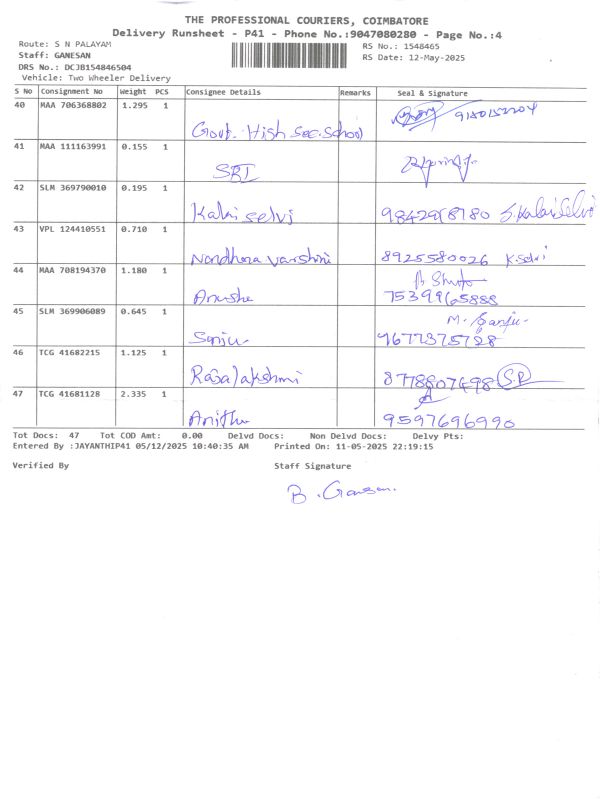 THE PROFESSIONAL COURIERS, COIMBATORE
Delivery Runsheet - P41 - Phone No.:9047080280 - Page No.:4
Route: S N PALAYAM
RS No.: 1548465
Staff: GANESAN
RS Date: 12-May-2025
DRS No.: DCJB154846504
Vehicle: Two Wheeler Delivery
S No Consignment No Weight PCS Consignee Details Remarks Seal & Signature
40 MAA 706368802 1.295 1
Govt. High Sec. School
41 MAA 111163991 0.155 1
SBI
42 SLM 369790010 0.195 1
Kalai selvi 9842968180 S.KalaiSelvi
43 VPL 124410551 0.710 1
Nandhana varshini 8925580026 K.Selvi
44 MAA 708194370 1.180 1
Anusha 7539965888
45 SLM 369906089 0.645 1 M. Sanju
Sanju 9677375728
46 TCG 41682215 1.125 1
Rajalakshmi 8778807498 S.R
47 TCG 41681128 2.335 1
Anitha 9597696990
Tot Docs: 47 Tot COD Amt: 0.00 Delvd Docs: Non Delvd Docs: Delvy Pts:
Entered By :JAYANTHIP41 05/12/2025 10:40:35 AM Printed On: 11-05-2025 22:19:15
Verified By Staff Signature
B. Ganesan.